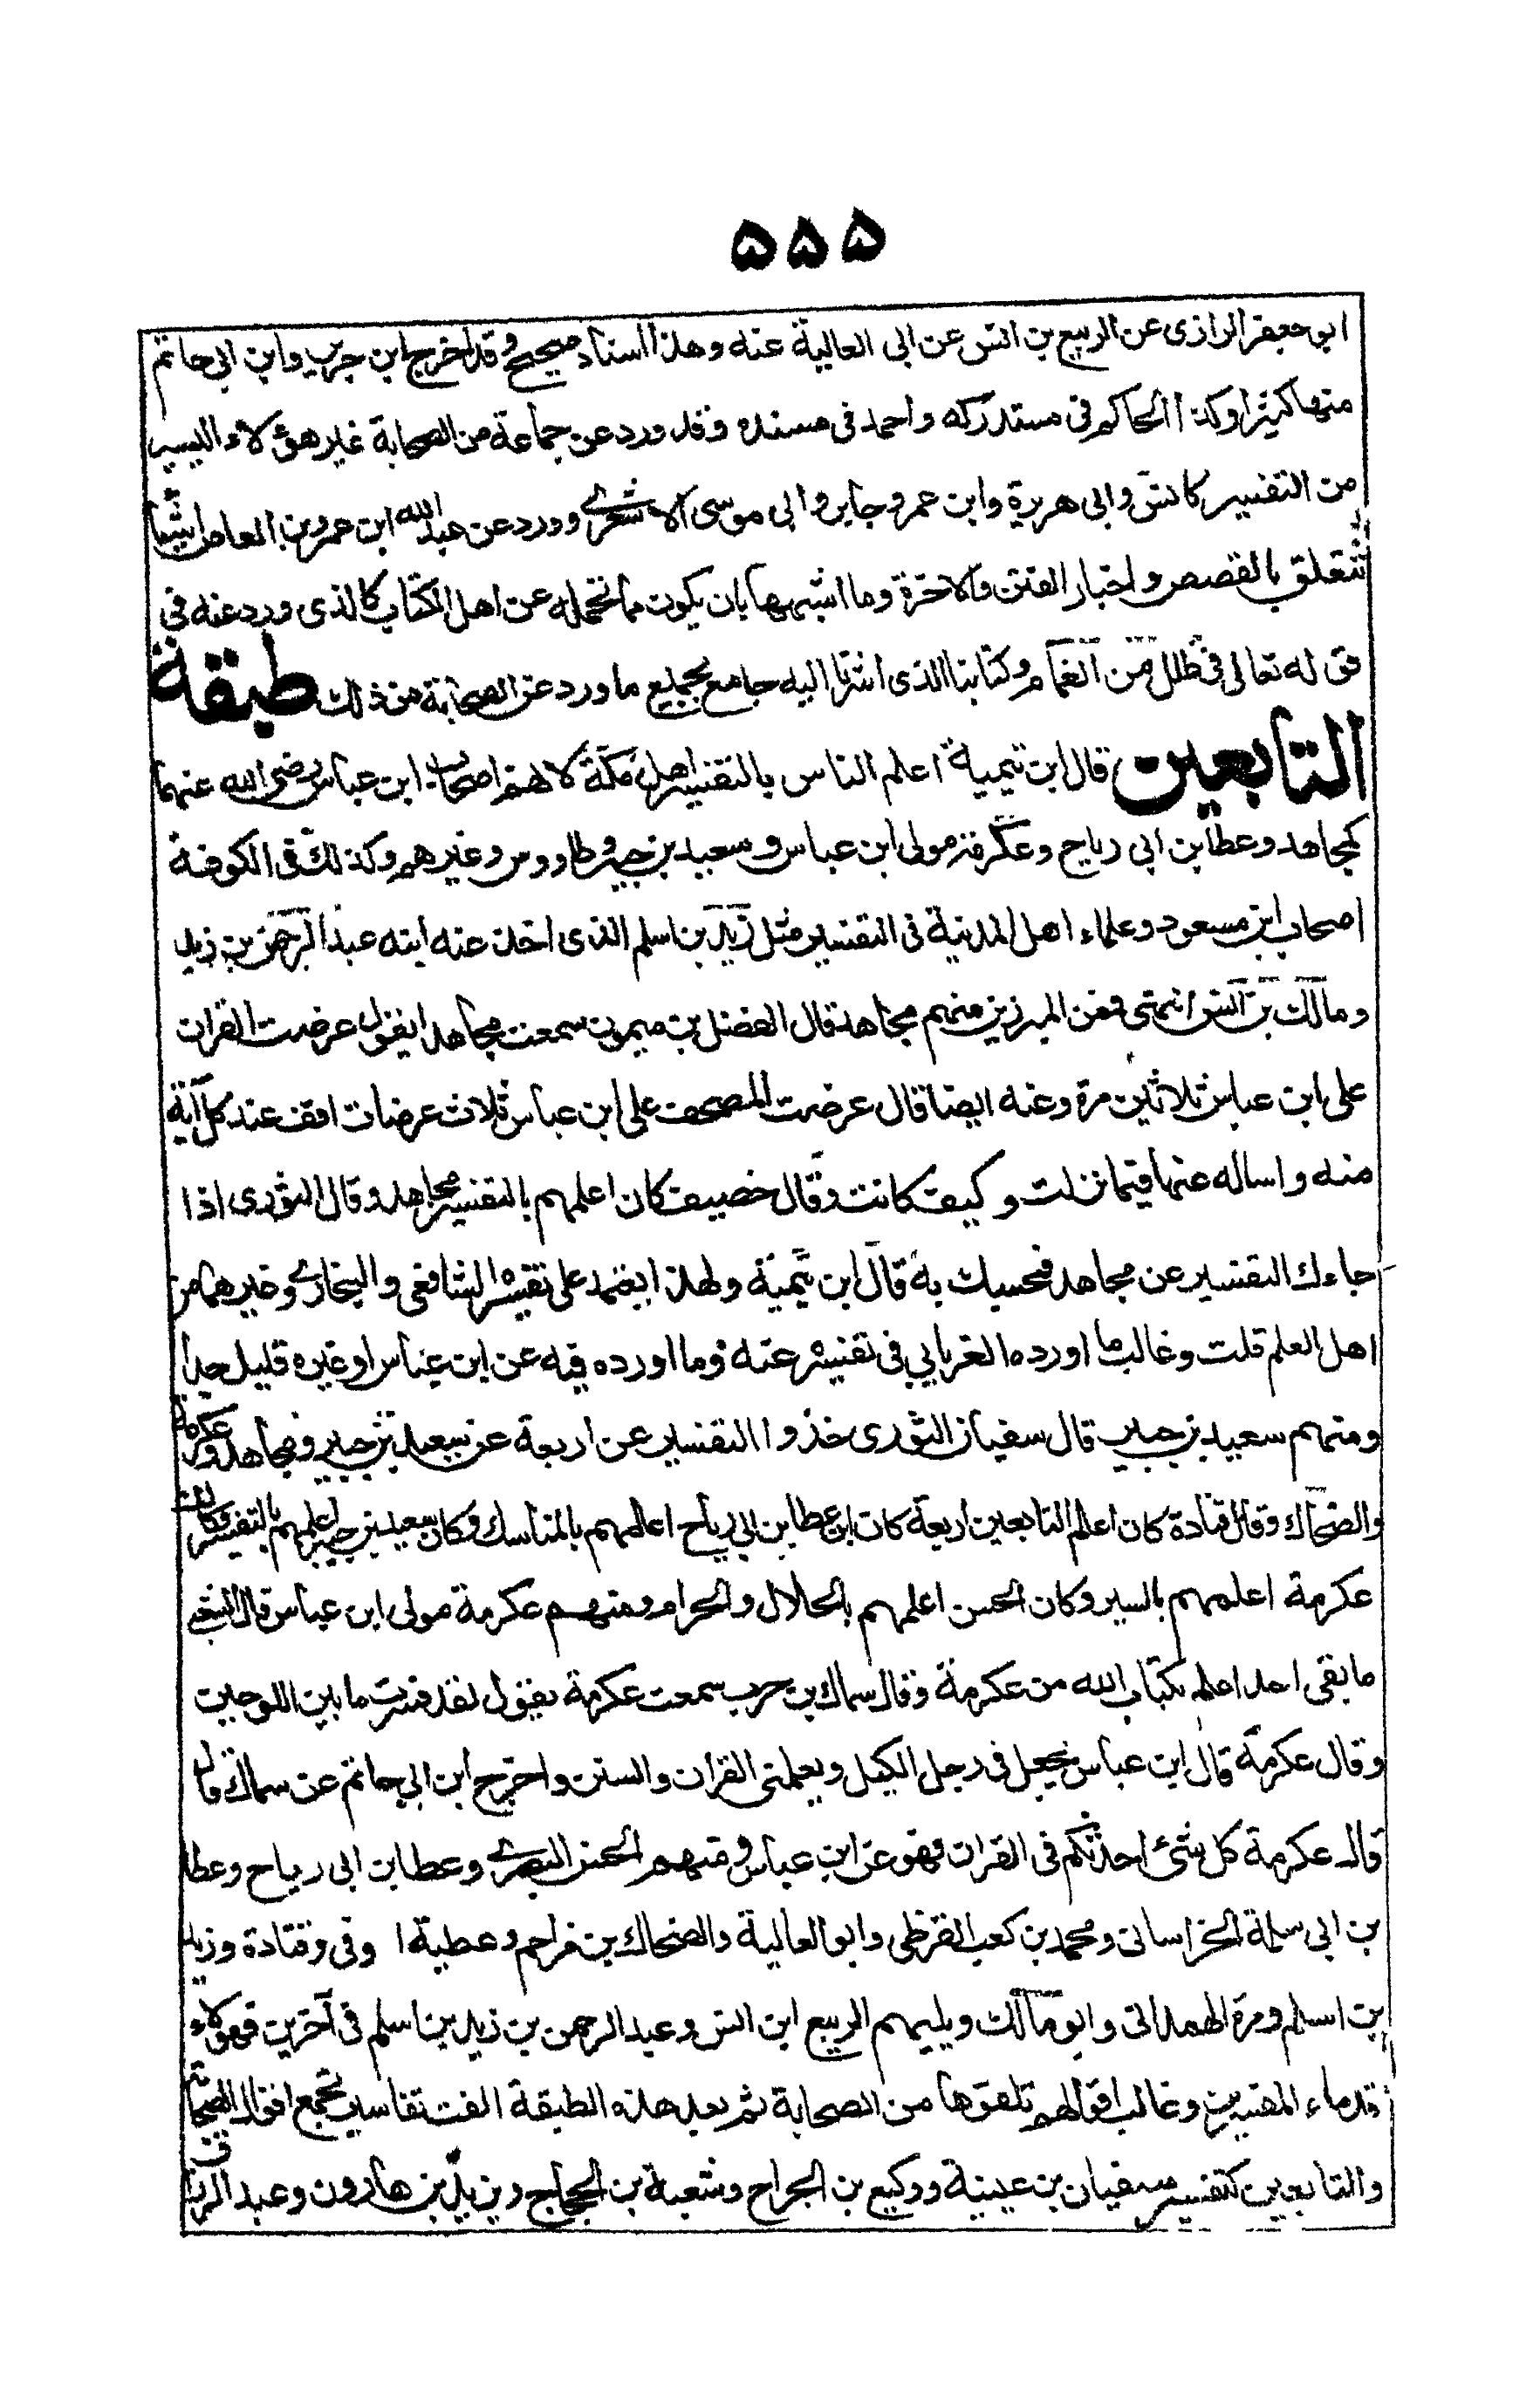 ۵۵۵
ابو جعفر الرازى عن الربيع بن انس عن ابى العالية عنه وهذا اسناد صحيح وقد اخرج ابن جرير وابن ابى حاتم
منها كثيرا وكذا الحاكم فى مستدركه واحمد فى مسنده وقد ورد عن جماعة من الصحابة غير هؤلاء اليسير
من التفسير كانس وابى هريرة وابن عمر وجابر وابى موسى الاشعرى وورد عن عبد الله ابن عمرو بن العاص اشياء
تتعلق بالقصص واخبار الفتن والاخرة وما اشبهها بان يكون مما تحمله عن اهل الكتاب كالذى ورد عنه فى
قوله تعالى فى ظلل من الغمام وكتابنا الذى اشرنا اليه جامع لجميع ما ورد عن الصحابة من ذلك طبقة
التابعين قال ابن تيمية اعلم الناس بالتفسير اهل مكة لانهم اصحاب ابن عباس رضى الله عنهما
كمجاهد وعطا بن ابى رباح وعكرمة مولى ابن عباس وسعيد بن جبير وطاووس وغيرهم وكذلك فى الكوفة
اصحاب ابن مسعود وعلماء اهل المدينة فى التفسير مثل زيد بن اسلم الذى اخذ عنه ابنه عبد الرحمن بن زيد
ومالك بن انس انتهى فمن المبرزين منهم مجاهد قال الفضل بن ميمون سمعت مجاهدا يقول عرضت القران
على ابن عباس ثلاثين مرة وعنه ايضا قال عرضت المصحف على ابن عباس ثلاث عرضات اقف عند كل آية
منه واساله عنها فيما نزلت وكيف كانت وقال خصيف كان اعلمهم بالتفسير مجاهد وقال الثورى اذا
جاءك التفسير عن مجاهد فحسبك به قال ابن تيمية ولهذا يعتمد على تفسيره الشافعى والبخارى وغيرهما من
اهل العلم قلت وغالب ما اورده الفريابى فى تفسيره عنه وما اورده فيه عن ابن عباس او غيره قليل جدا
ومنهم سعيد بن جبير قال سفيان الثورى خذوا التفسير عن اربعة عن سعيد بن جبير ومجاهد وعكرمة
والضحاك وقال قتادة كان اعلم التابعين اربعة كان ابن عطا بن ابى رباح اعلمهم بالمناسك وكان سعيد بن جبير اعلمهم بالتفسير وكان
عكرمة اعلمهم بالسير وكان الحسن اعلمهم بالحلال والحرام ومنهم عكرمة مولى ابن عباس قال الشعبى
ما بقى احد اعلم بكتاب الله من عكرمة وقال سماك بن حرب سمعت عكرمة يقول لقد فسرت ما بين اللوحين
وقال عكرمة قال ابن عباس يجعل فى رجل الكبل ويعلمنى القران والسنن واخرج ابن ابى حاتم عن سماك قال
قال عكرمة كل شئ احدثكم فى القران فهو عن ابن عباس ومنهم الحسن البصرى وعطا بن ابى رباح وعطا
بن ابى سلمة الخراسانى ومحمد بن كعب القرظى وابو العالية والضحاك بن مزاحم وعطية ا وفى وقتادة وزيد
بن اسلم ومرة الهمدانى وابو مالك ويليهم الربيع ابن انس وعبد الرحمن بن زيد بن اسلم فى آخرين فهؤلاء
قدماء المفسرين وغالب اقوالهم تلقوها من الصحابة ثم بعد هذه الطبقة الفت تفاسير تجمع اقوال الصحابة
والتابعين كتفسير سفيان بن عيينة ووكيع بن الجراح وشعبة بن الحجاج ويزيد بن هارون وعبد الرزاق